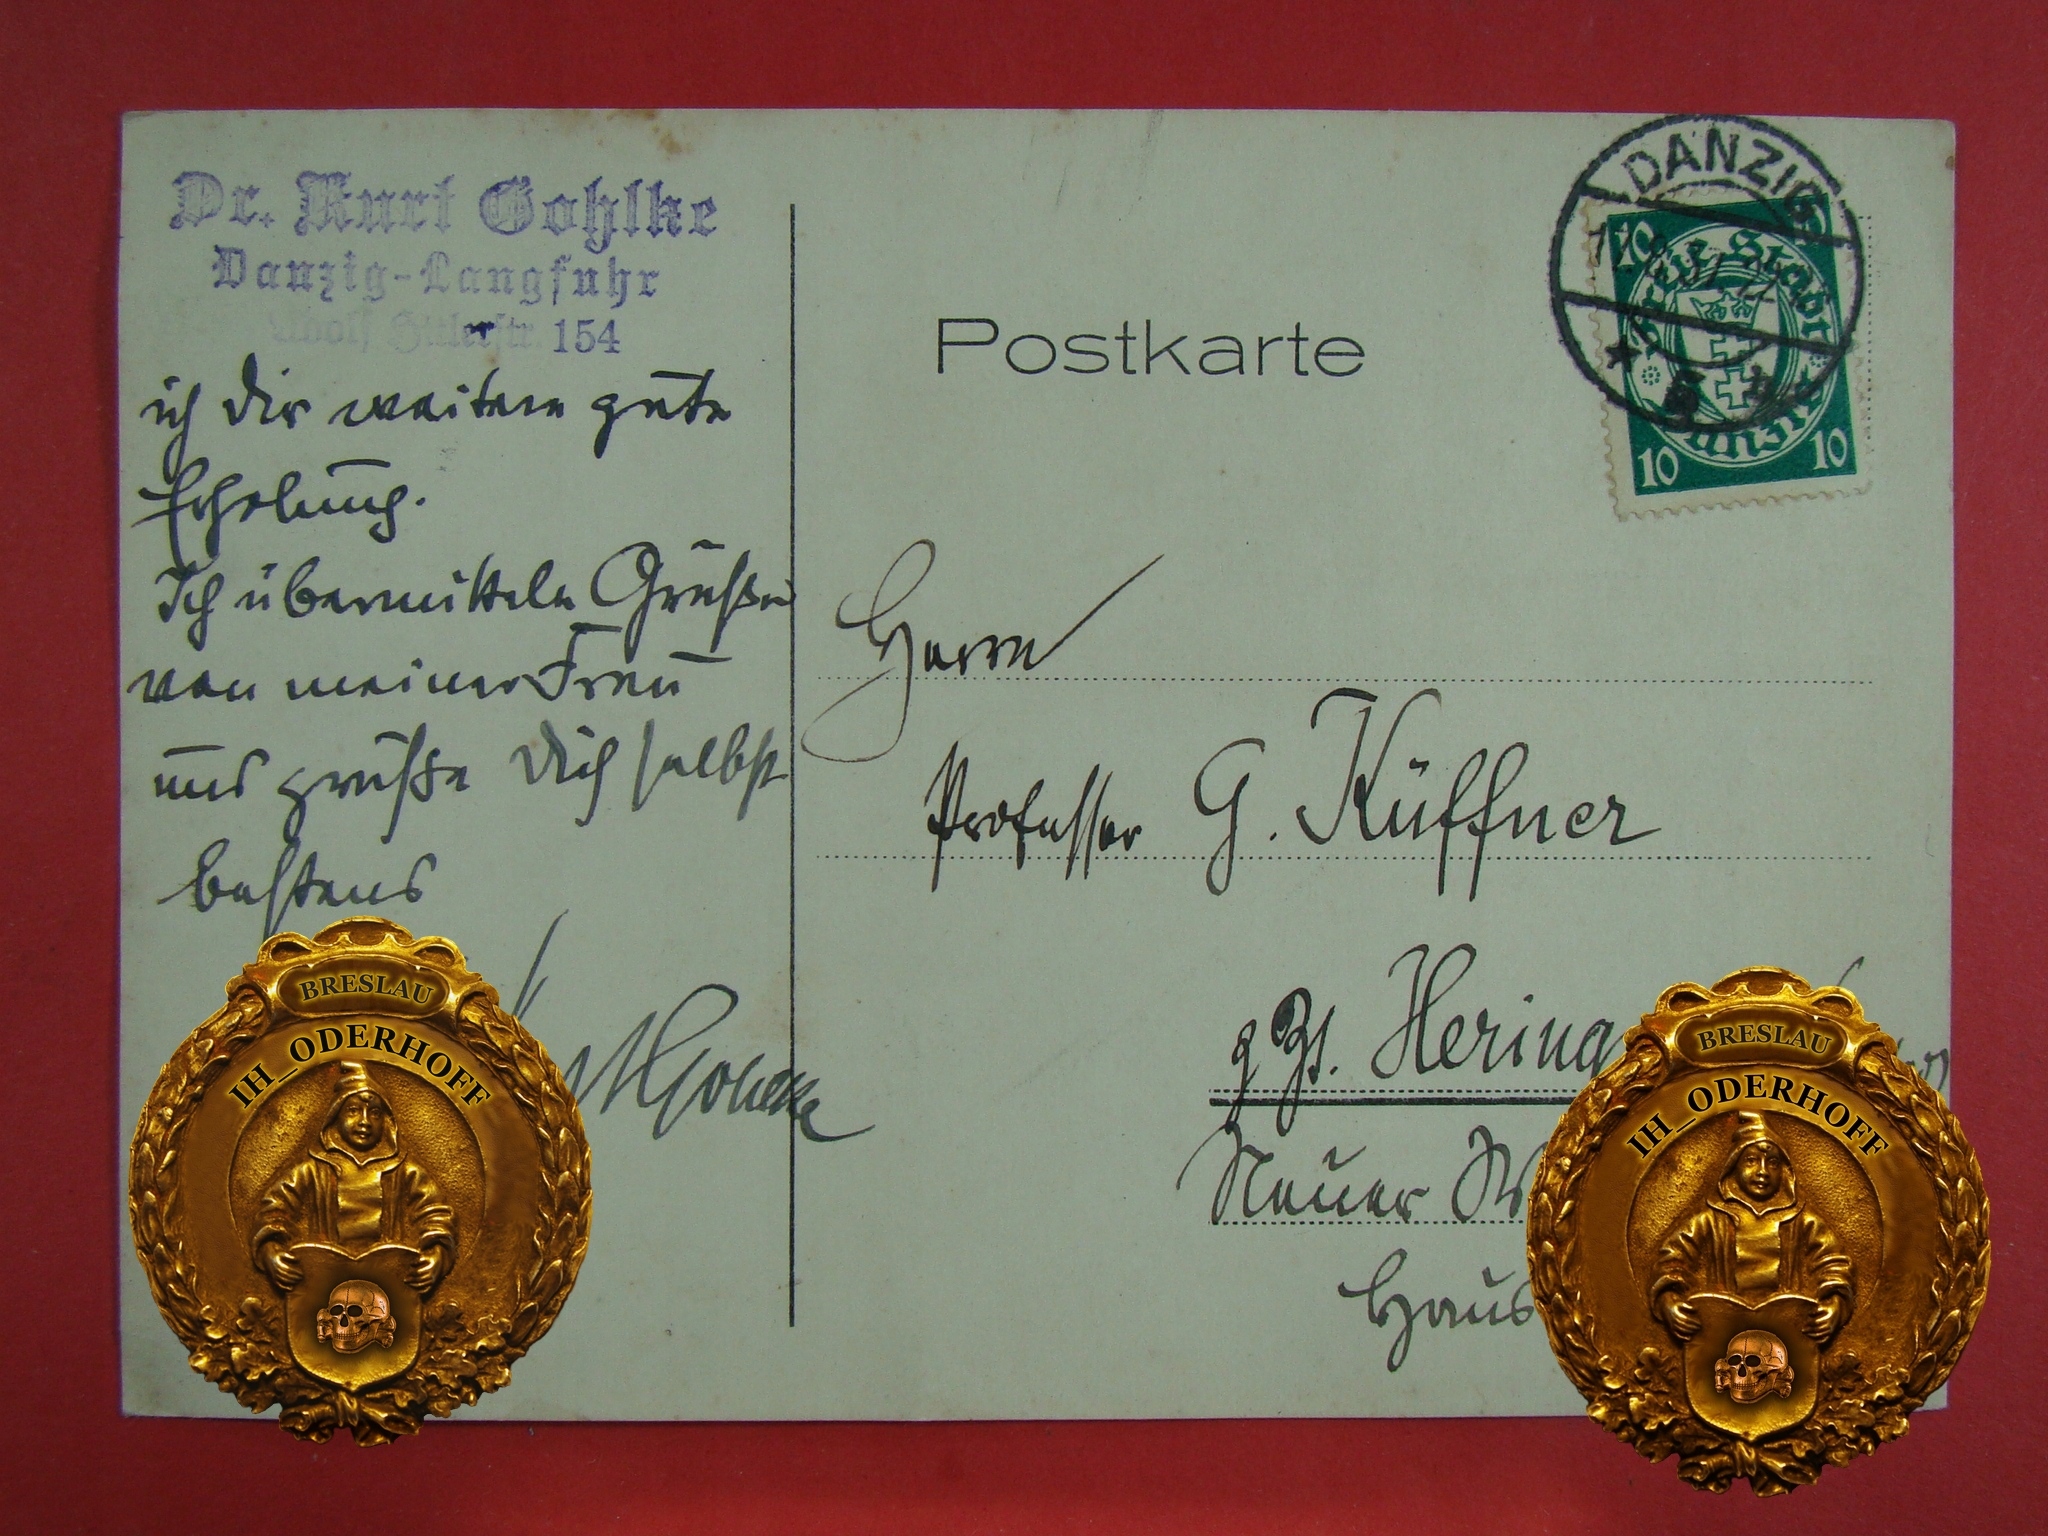 Dr. Kurt Gohlke
Danzig-Langfuhr
Adolf Hitlerstr. 154
ich dir weitere gute
Erholung.
Ich übermittele Grüße
von meiner Frau
und grüße Dich selbst
bestens
Postkarte
DANZIG
5
10
Freie Stadt
Danzig
10 10
Herrn
Professor G. Küffner
z. Zt.
Neuer
Haus
BRESLAU
IH_ODERHOFF
BRESLAU
IH_ODERHOFF